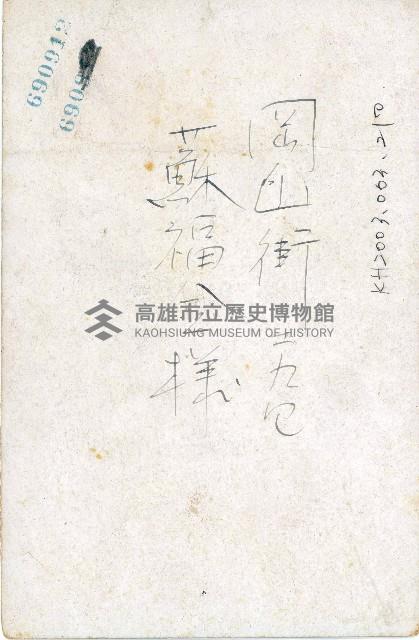 690912
6908
KH2003.002.210
岡山街二九四
蘇福全樣
高雄市立歷史博物館
KAOHSIUNG MUSEUM OF HISTORY